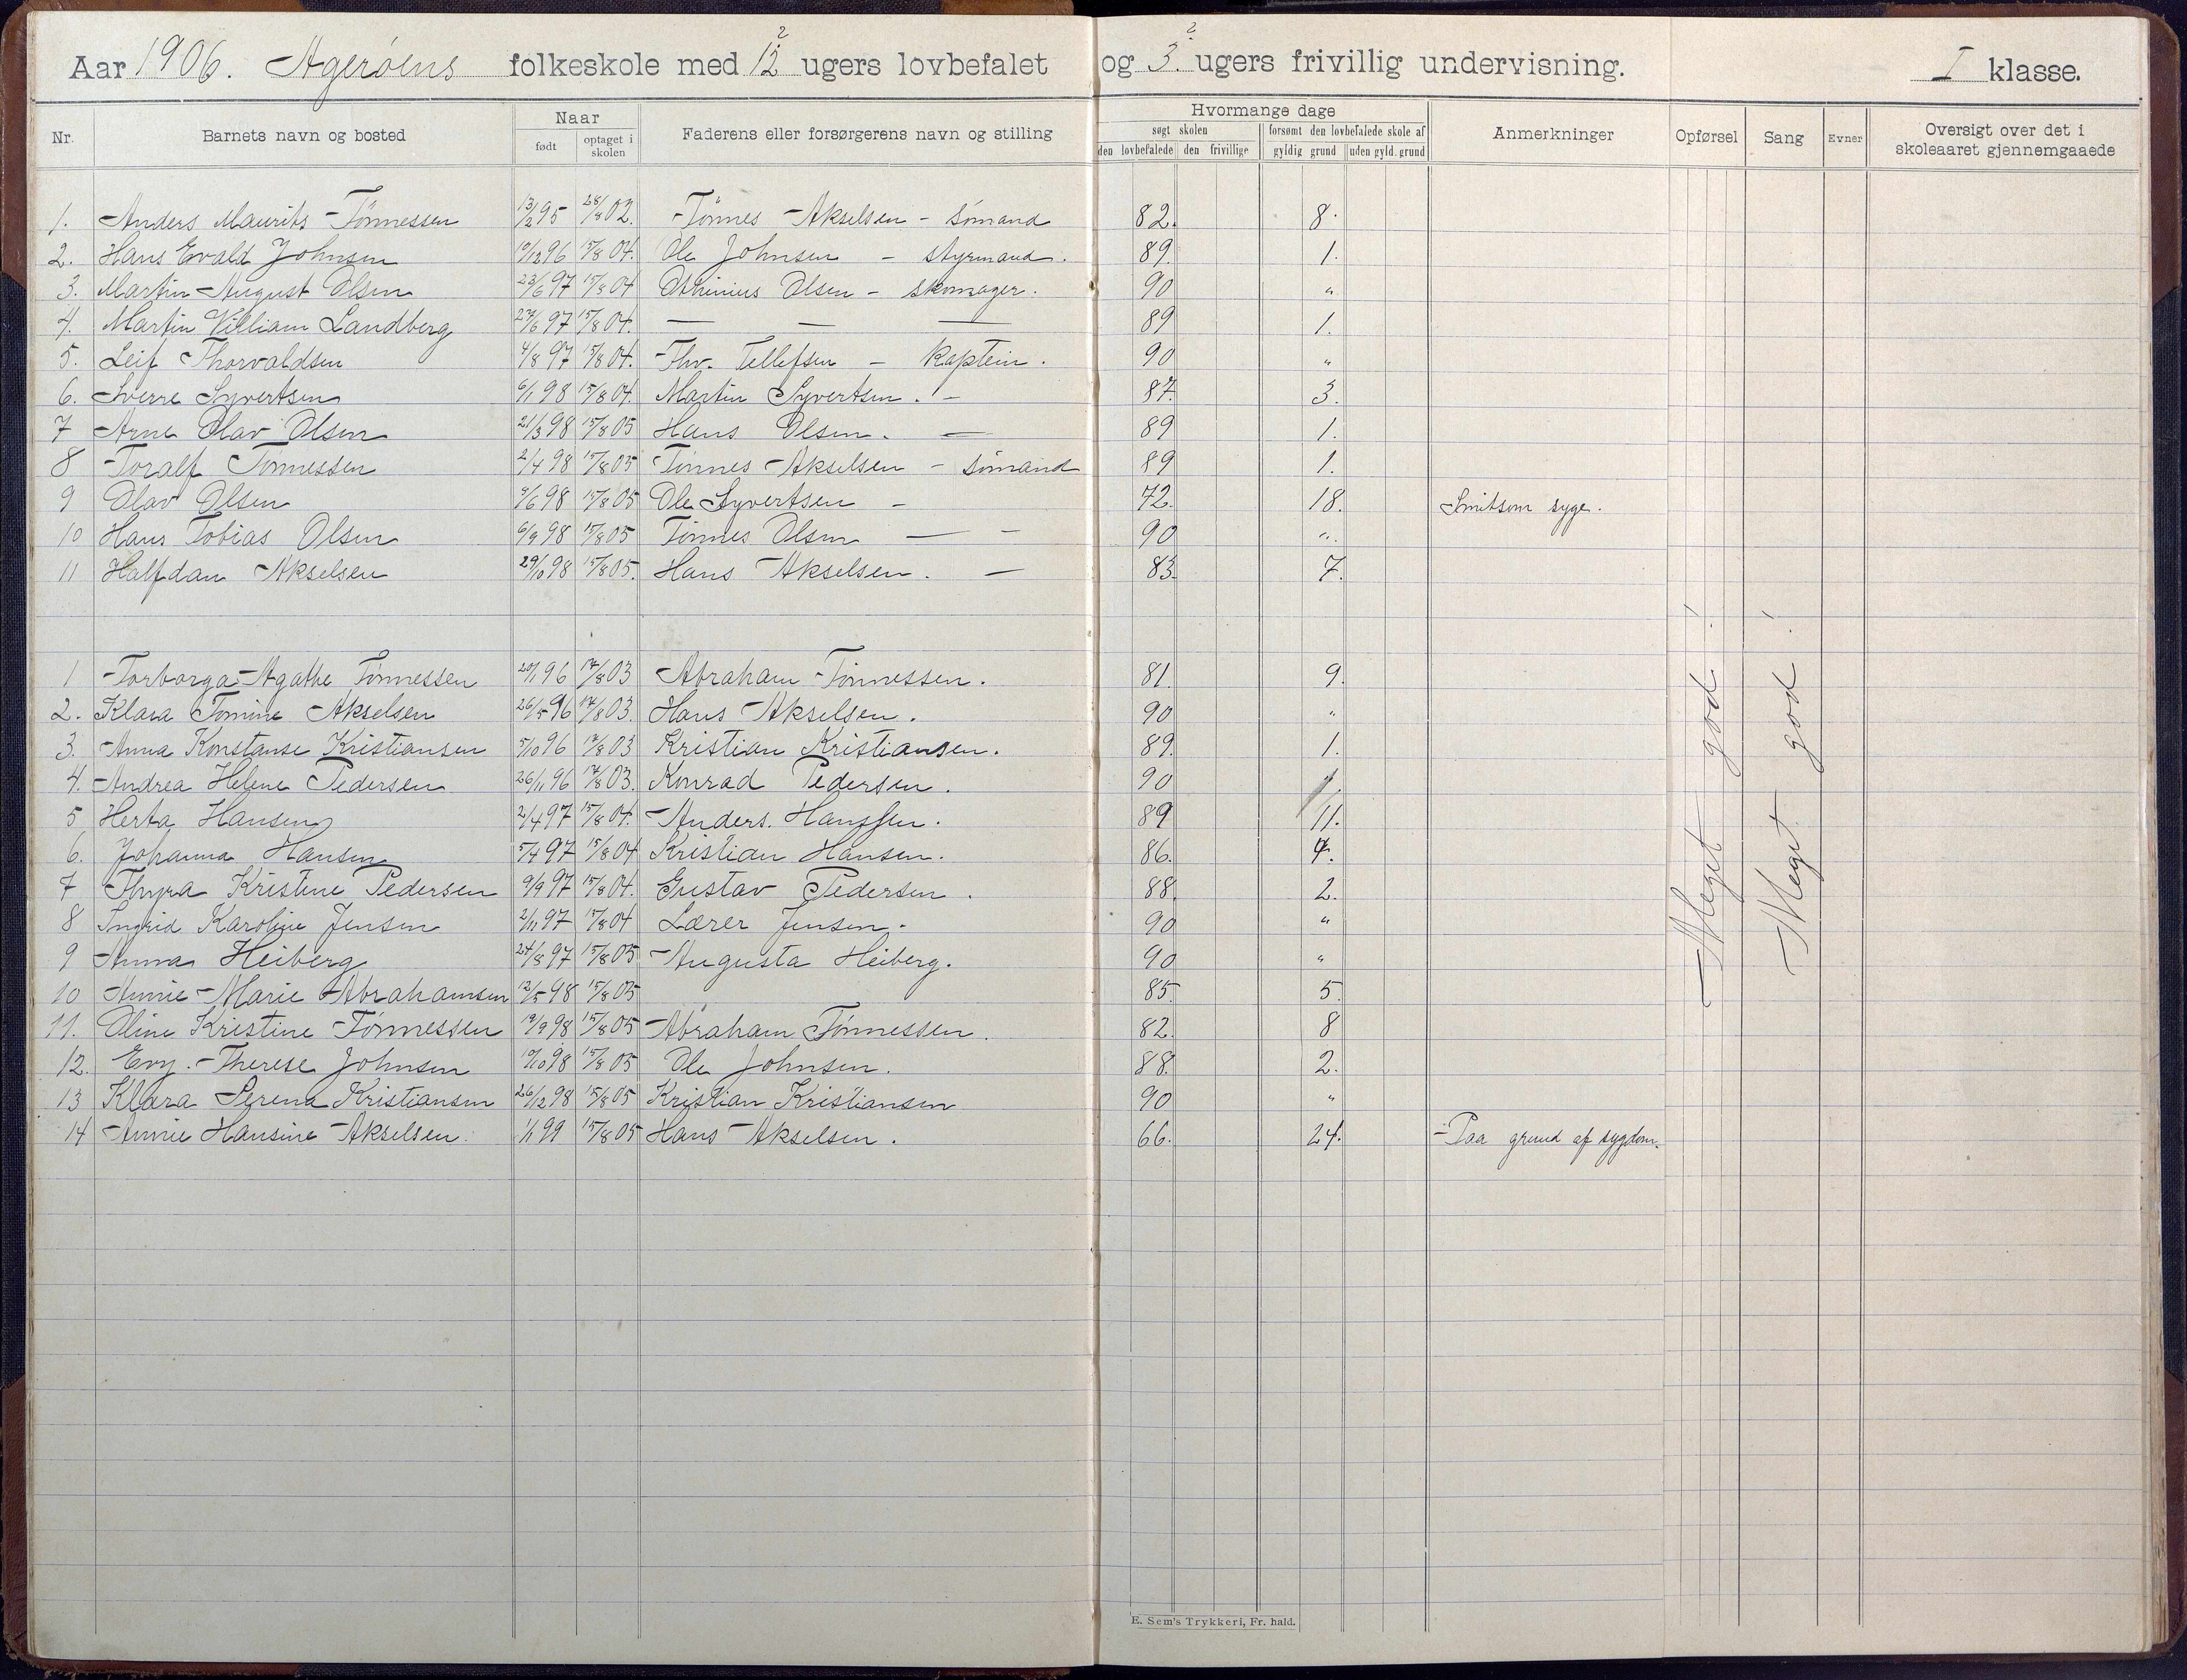 Aar 1906. Agerøens folkeskole med 12 2 ugers lovbefalet og 3. 2 ugers frivillig undervisning. I klasse.
Nr. Barnets navn og bosted Naar født optaget i skolen Faderens eller forsørgerens navn og stilling Hvormange dage søgt skolen den lovbefalede den frivillige forsømt den lovbefalede skole af gyldig grund uden gyld. grund Anmerkninger Opførsel Sang Evner Oversigt over det i skoleaaret gjennemgaaede
1. Anders Maurits Tønnessen 13/2 95 28/8 02. Tønnes Akselsen - sømand 82. 8.
2. Hans Evald Johnsen 10/12 96 15/8 04. Ole Johnsen - styrmand. 89. 1.
3. Martin August Olsen 23/6 97 15/8 04 Olsen - skomager. 90 "
4. Martin Villiam Landberg 97 15/8 04. — — — 89 1.
5. Leif Thorvaldsen 4/8 97 15/8 04. Thv. Tellefsen - Kaptein. 90 "
6. Sverre Syvertsen 6/1 98 15/8 04. Martin Syvertsen. - 87. 3.
7 Arne Olav Olsen 21/3 98 15/8 05 Hans Olsen. — 89 1.
8 Toralf Tønnessen 2/4 98 15/8 05 Tønnes Akselsen - sømand 89 1.
9 Olav Olsen 98 15/8 05 Ole Syvertsen - 72. 18. Smitsom syge.
10 Hans Tobias Olsen 6/9 98 15/8 05 Tønnes Olsen — - 90 "
11 Halfdan Akselsen 29/10 98 15/8 05. Hans Akselsen. — 83. 7.
1 Torborga Agathe Tønnessen 20/1 96 17/8 03 Abraham Tønnessen. 81. 9.
2. Klara Tomine Akselsen 26/5 96 17/8 03. Hans Akselsen. 90 "
3. Anna Konstanse Kristiansen 5/10 96 17/8 03 Kristian Kristiansen. 89. 1.
4. Andrea Helene Pedersen 26/11 96 17/8 03. Konrad Pedersen. 90
5 Herta Hansen 2/4 97 15/8 04. Anders. Hanssen. 89 11.
6. Johanna Hansen 5/4 97 15/8 04 Kristian Hansen. 86. 4.
7 Thyra Kristine Pedersen 9/9 97 15/8 04. Gustav Pedersen. 88. 2.
8 Ingrid Karoline Jensen 2/11 97 15/8 04 Lærer Jensen. 90 "
9 Anna Heiberg 24/8 97 15/8 05 Augusta Heiberg. 90 "
10 Annie Marie Abrahamsen 12/5 98 15/8 05 85. 5.
11. Oline Kristine Tønnessen 19/9 98 15/8 05 Abraham Tønnessen. 82. 8
12. Evy. Therese Johnsen 10/10 98 15/8 05 Ole Johnsen. 88. 2.
13 Klara Serena Kristiansen 26/12 98 15/8 05 Kristian Kristiansen 90 "
14 Annie Hansine Akselsen. 1/1 99 15/8 05 Hans Akselsen. 66. 24. Paa grund af sygdom.
Meget god!
Meget god!
E. Sem's Trykkeri, Fr. hald.